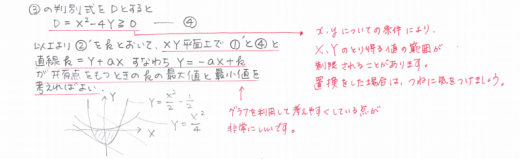 ③の判別式をDとすると
D = X²-4Y≧0 ── ④
以上より②'を k とおいて、XY平面上で①'と④と
直線 k=Y+aX すなわち Y=-aX+k
が共有点をもつときの k の最大値と最小値を
考えればよい。
Y
Y=x²/2-1/2
Y=x²/4
X
x,yについての条件により、
X,Yのとり得る値の範囲が
制限されることがあります。
置換をした場合は、つねに気をつけましょう。
グラフを利用して考えやすくしている点が
非常にいいです。